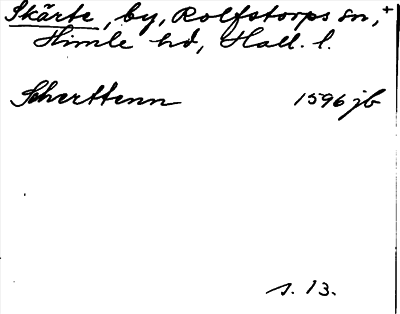 Skärte, by, Rolfstorps sn, +
Himle hd, Hall. l.
Scherttenn 1596 jb
s. 13.